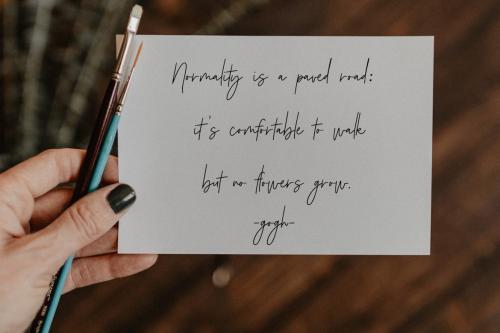 Normality is a paved road:
it's comfortable to walk
but no flowers grow.
-gogh-